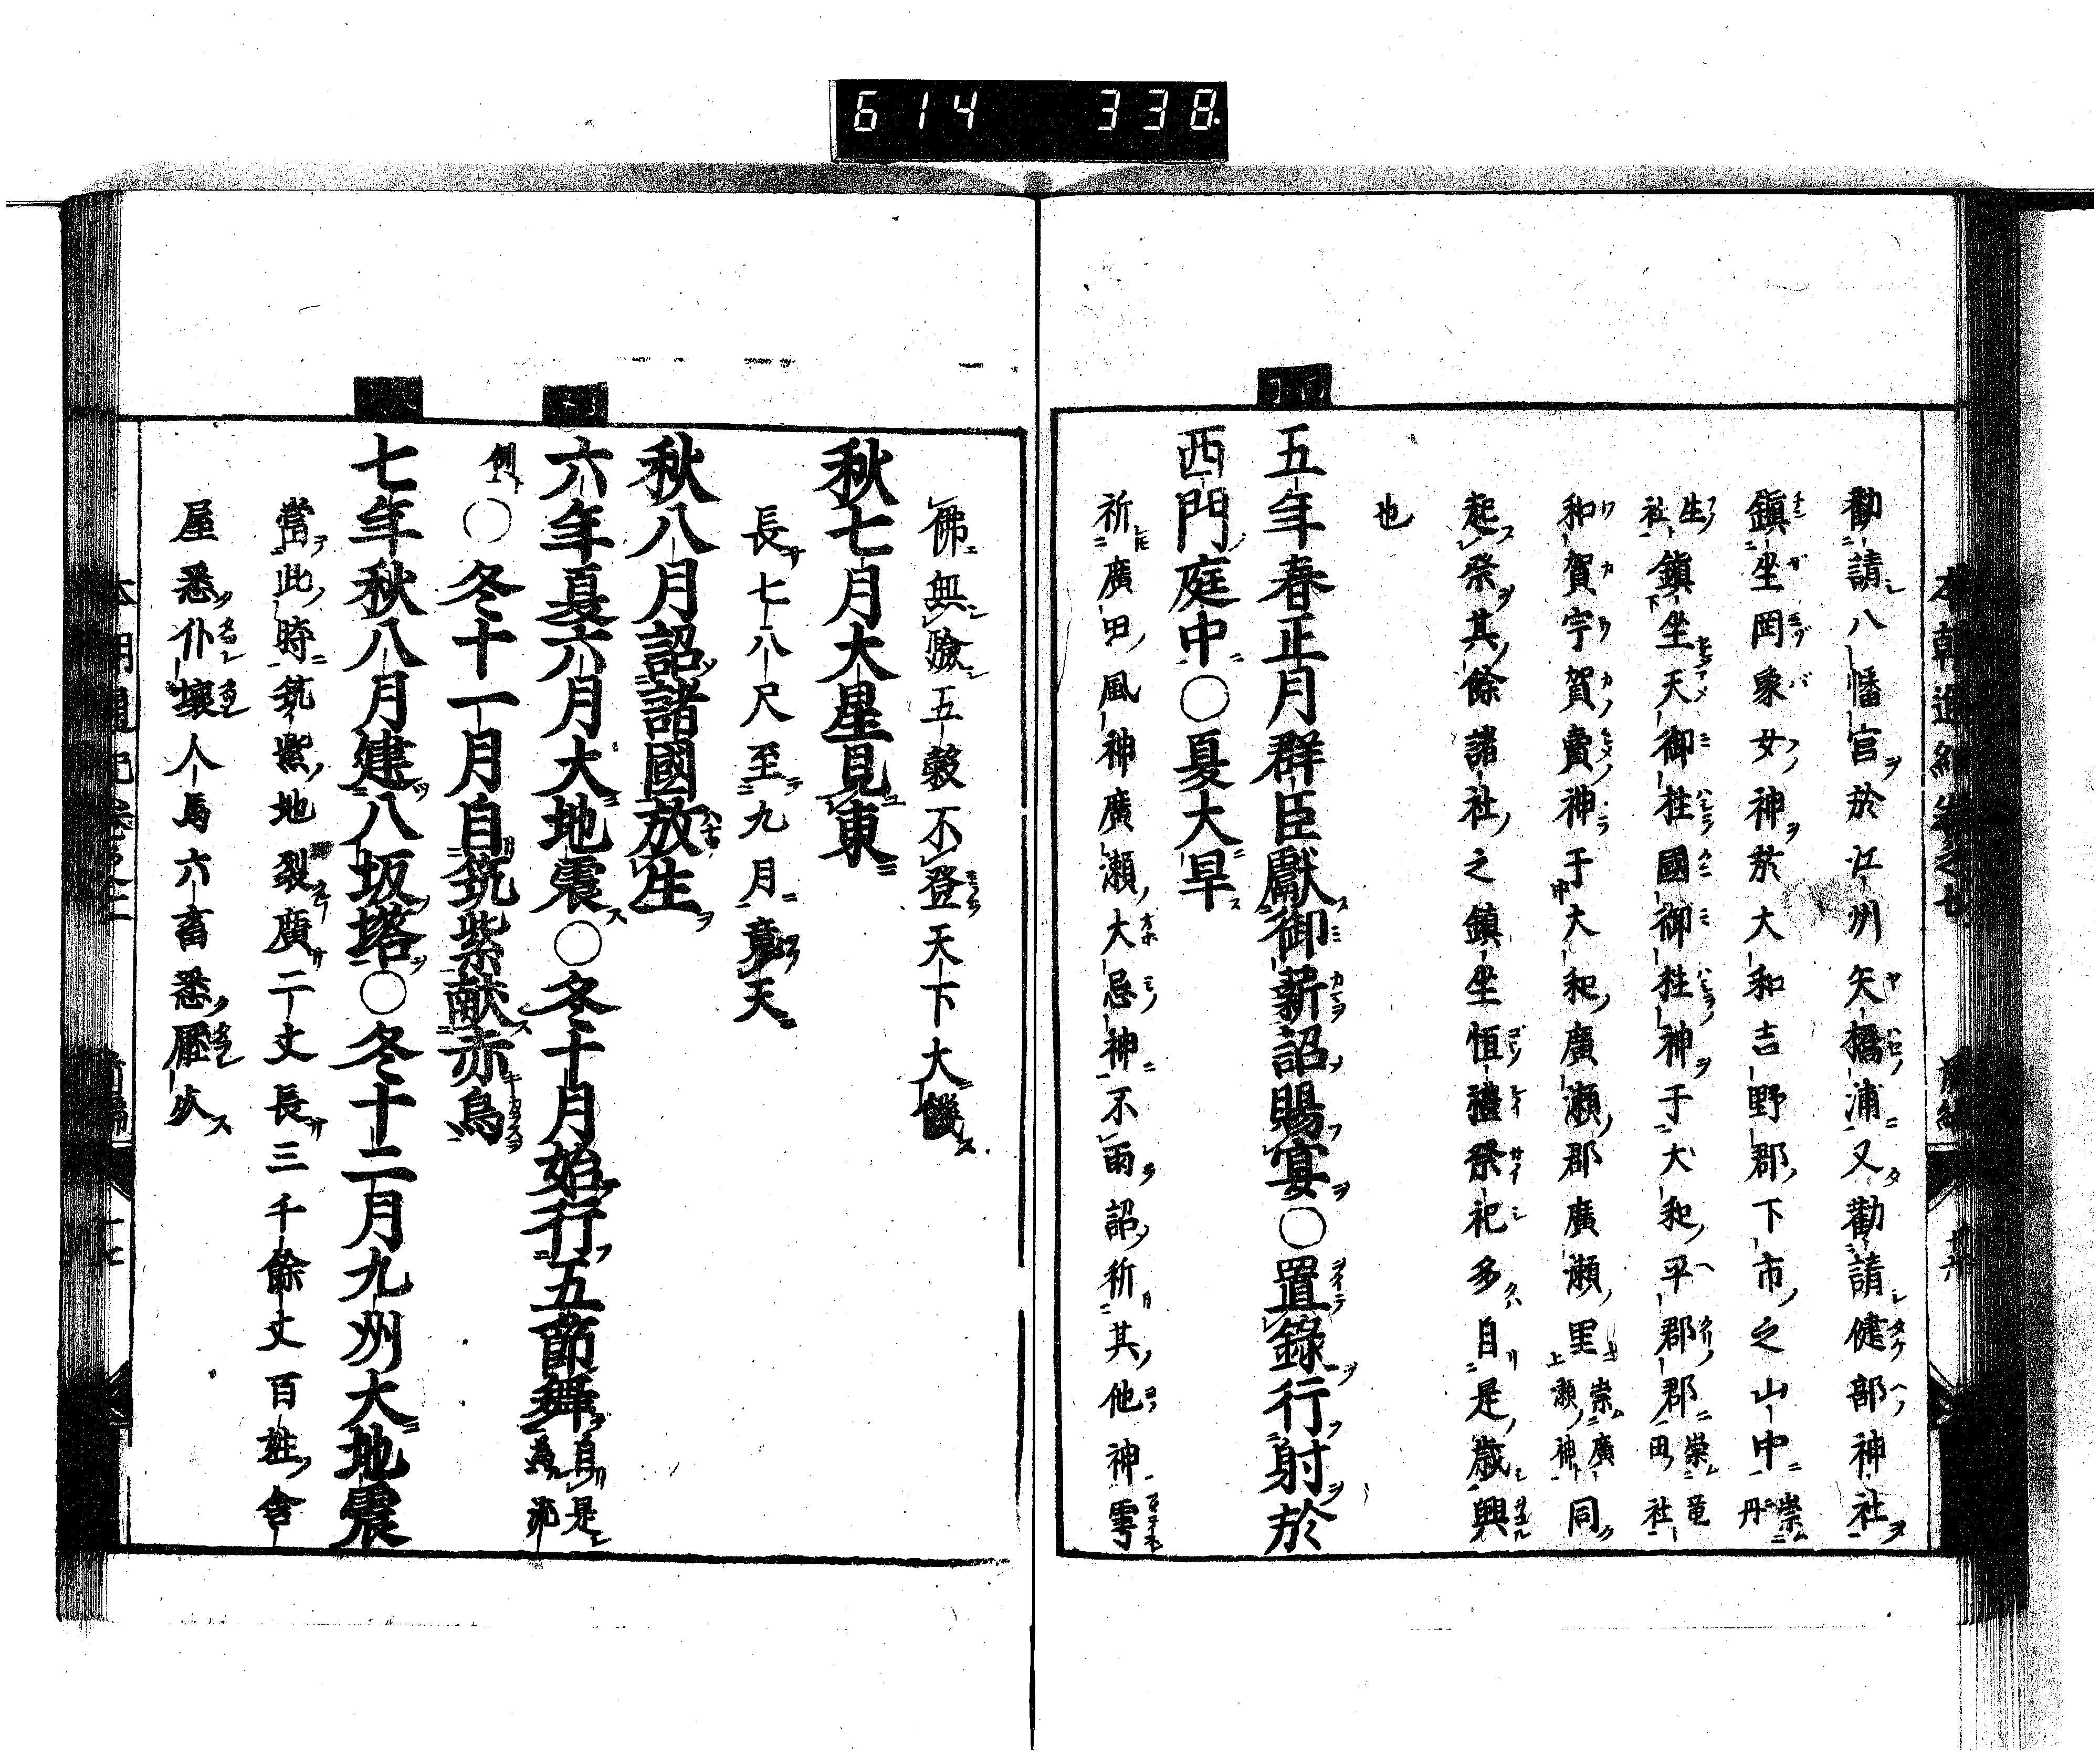 614 338
本朝通紀卷之七 前編 十六
勸請八幡宮於江州矢橋浦又勸請健部神社
鎭坐罔象女神於大和吉野郡下市之山中崇丹
生社鎭坐天御柱國御柱神于大和平郡郡崇竜田社
和賀宇賀賣神于大和廣瀬郡廣瀬里崇廣瀬神同
起祭其餘諸社之鎭坐恒禮祭祀多自是歳興
也
五年春正月群臣獻御薪詔賜宴〇置錄行射於
西門庭中〇夏大旱
祈廣田風神廣瀬大忌神不雨詔祈其他神雩
佛無驗五穀不登天下大饑
秋七月大星見東
長七八尺至九月竟天
秋八月詔諸國放生
六年夏六月大地震〇冬十月始行五節舞自是為流
例〇冬十一月自筑紫献赤烏
七年秋八月建八坂塔〇冬十二月九州大地震
當此時筑紫地裂廣二丈長三千餘丈百姓舎
屋悉仆壞人馬六畜悉壓火
十七